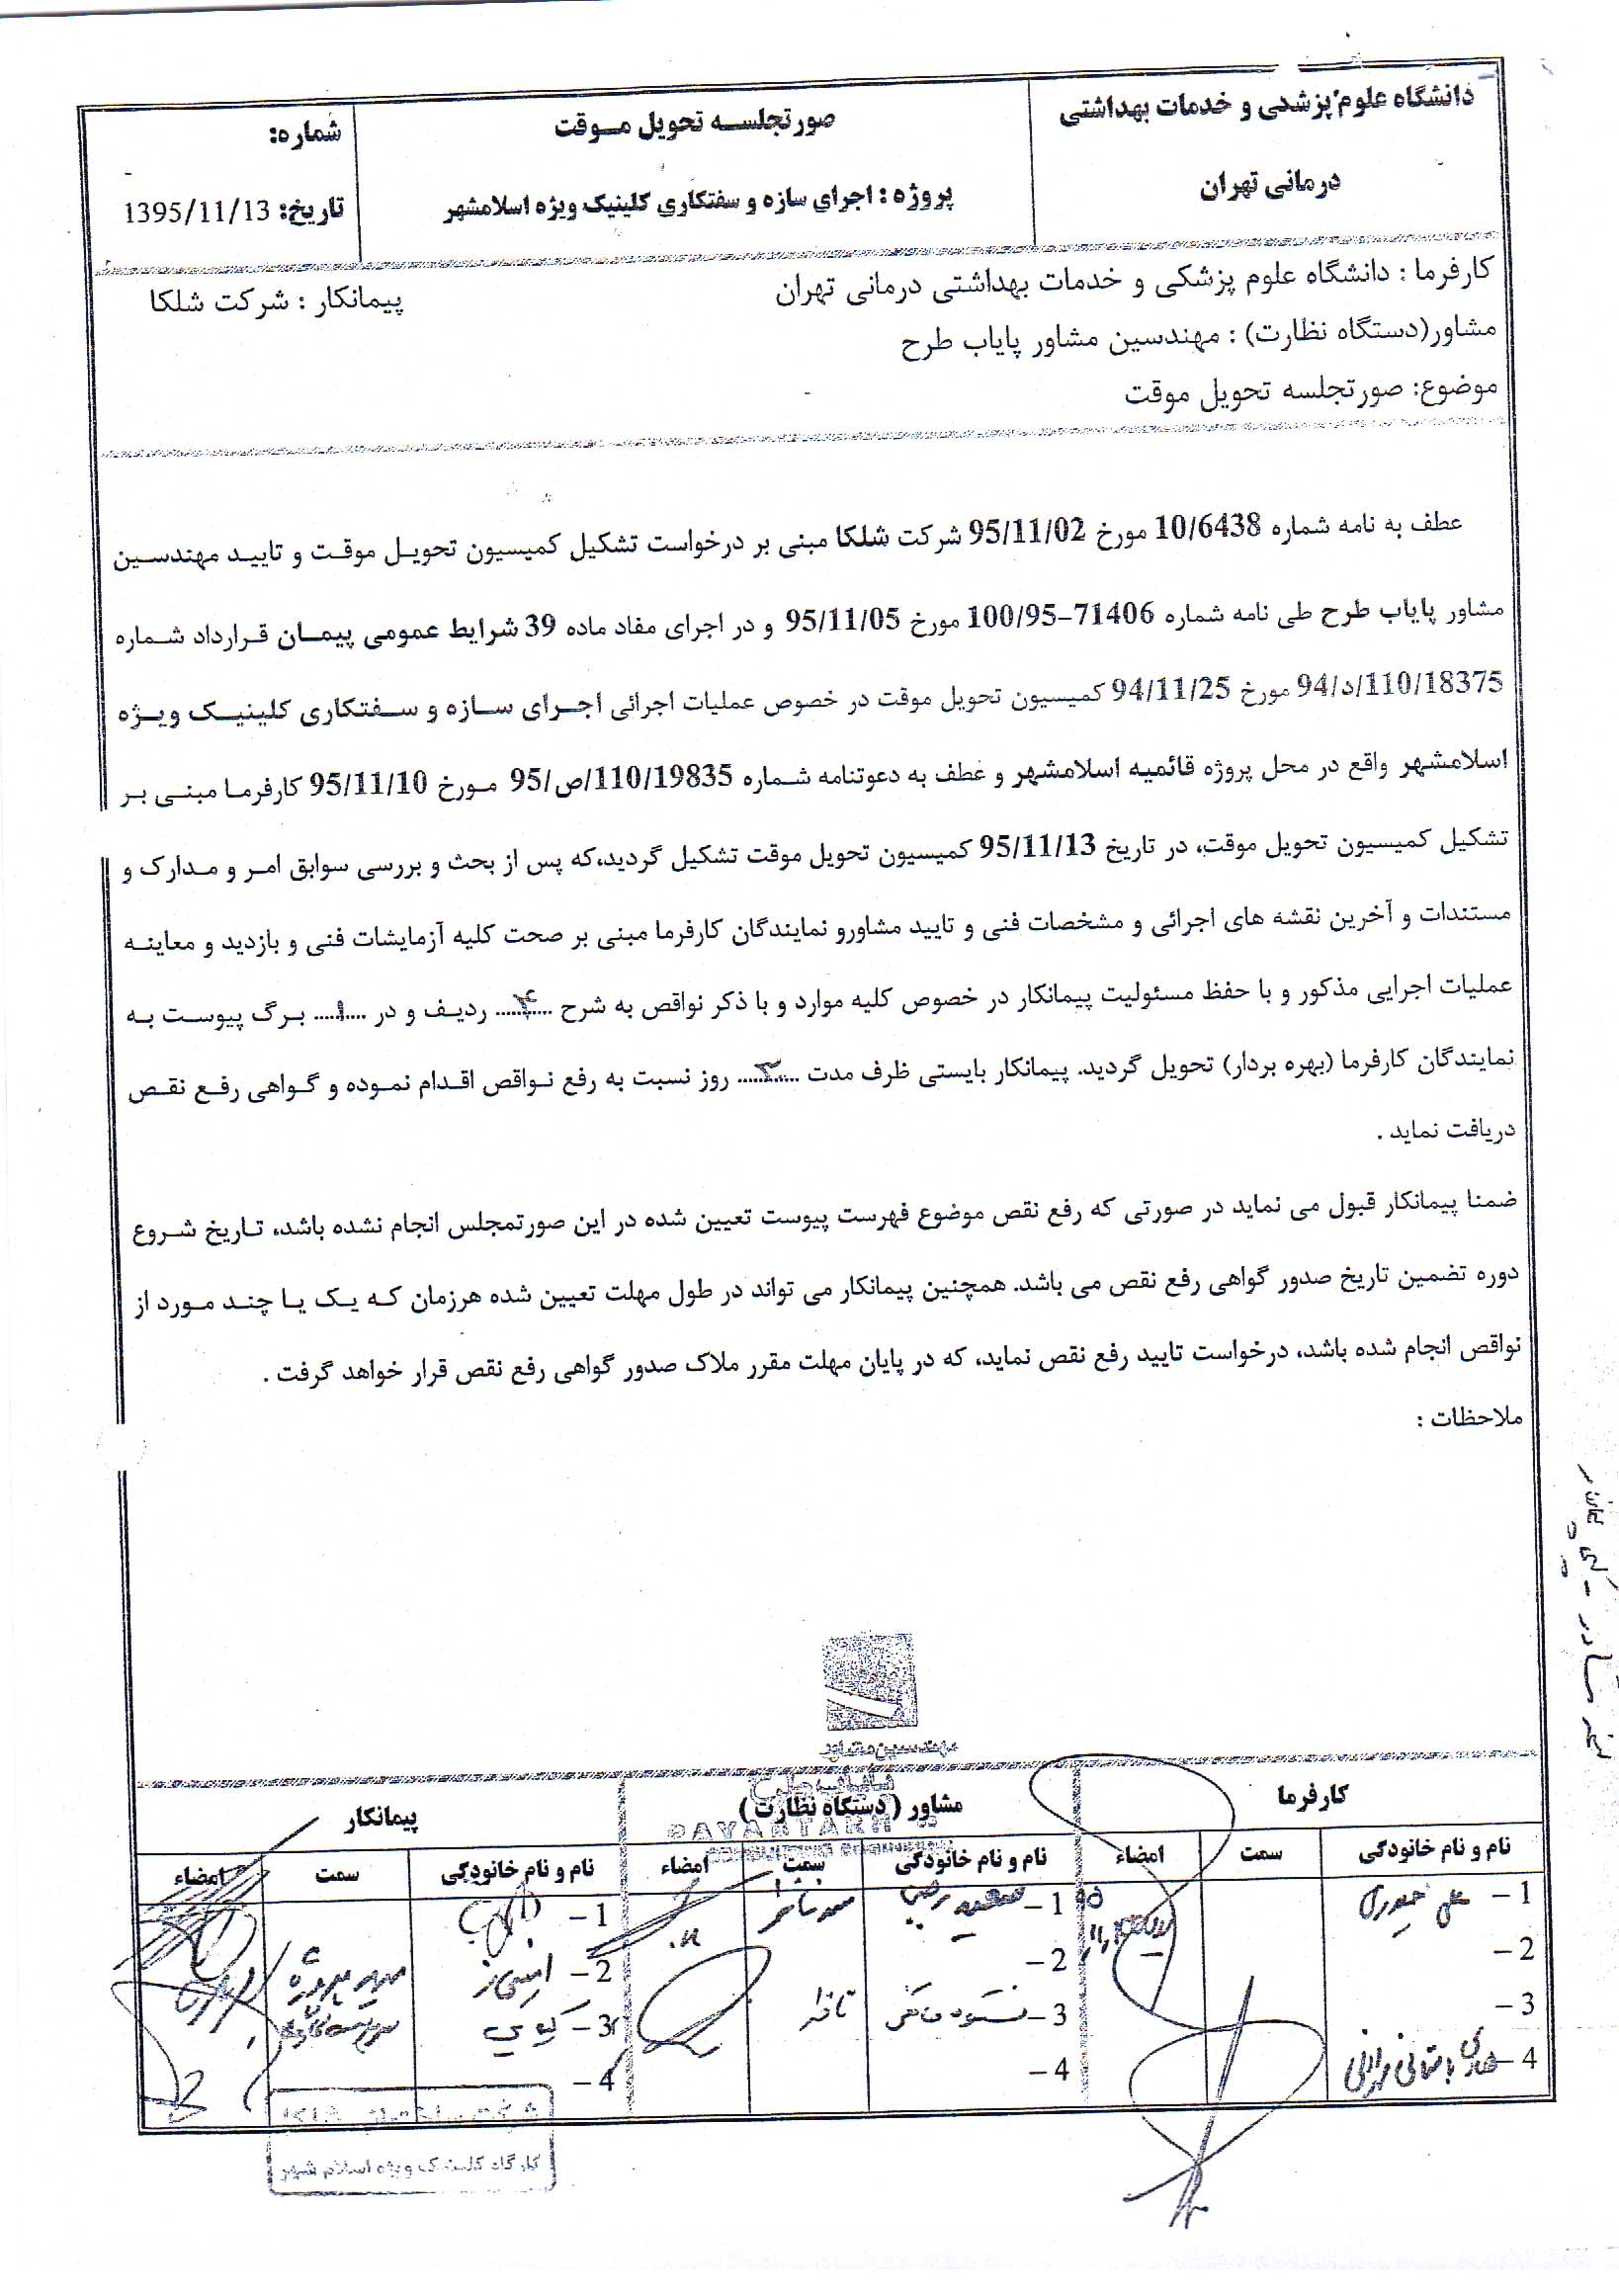 دانشگاه علوم پزشکی و خدمات بهداشتی
درمانی تهران
صورتجلسه تحویل موقت
پروژه : اجرای سازه و سفتکاری کلینیک ویژه اسلامشهر
شماره:
تاریخ: 1395/11/13
کارفرما : دانشگاه علوم پزشکی و خدمات بهداشتی درمانی تهران
پیمانکار : شرکت شلکا
مشاور(دستگاه نظارت) : مهندسین مشاور پایاب طرح
موضوع: صورتجلسه تحویل موقت
عطف به نامه شماره 10/6438 مورخ 95/11/02 شرکت شلکا مبنی بر درخواست تشکیل کمیسیون تحویل موقت و تایید مهندسین
مشاور پایاب طرح طی نامه شماره 71406-100/95 مورخ 95/11/05 و در اجرای مفاد ماده 39 شرایط عمومی پیمان قرارداد شماره
110/18375/د/94 مورخ 94/11/25 کمیسیون تحویل موقت در خصوص عملیات اجرائی اجرای سازه و سفتکاری کلینیک ویژه
اسلامشهر واقع در محل پروژه قائمیه اسلامشهر و عطف به دعوتنامه شماره 110/19835/ص/95 مورخ 95/11/10 کارفرما مبنی بر
تشکیل کمیسیون تحویل موقت، در تاریخ 95/11/13 کمیسیون تحویل موقت تشکیل گردید،که پس از بحث و بررسی سوابق امر و مدارک و
مستندات و آخرین نقشه های اجرائی و مشخصات فنی و تایید مشاورو نمایندگان کارفرما مبنی بر صحت کلیه آزمایشات فنی و بازدید و معاینه
عملیات اجرایی مذکور و با حفظ مسئولیت پیمانکار در خصوص کلیه موارد و با ذکر نواقص به شرح ............ ردیف و در ....۱.... برگ پیوست به
نمایندگان کارفرما (بهره بردار) تحویل گردید. پیمانکار بایستی ظرف مدت ............ روز نسبت به رفع نواقص اقدام نموده و گواهی رفع نقص
دریافت نماید .
ضمنا پیمانکار قبول می نماید در صورتی که رفع نقص موضوع فهرست پیوست تعیین شده در این صورتمجلس انجام نشده باشد، تاریخ شروع
دوره تضمین تاریخ صدور گواهی رفع نقص می باشد. همچنین پیمانکار می تواند در طول مهلت تعیین شده هرزمان که یک یا چند مورد از
نواقص انجام شده باشد، درخواست تایید رفع نقص نماید، که در پایان مهلت مقرر ملاک صدور گواهی رفع نقص قرار خواهد گرفت .
ملاحظات :
مهندسین مشاور
پایاب طرح
کارفرما
مشاور ( دستگاه نظارت )
پیمانکار
نام و نام خانودگی
سمت
امضاء
نام و نام خانودگی
سمت
امضاء
نام و نام خانودگی
سمت
امضاء
1 –
1 –
1 –
2 –
2 –
2 –
مدیر پروژه
3 –
3 –
3 –
4 – هادی باستانی
4 –
4 –
کارگاه کلینیک ویژه اسلام شهر